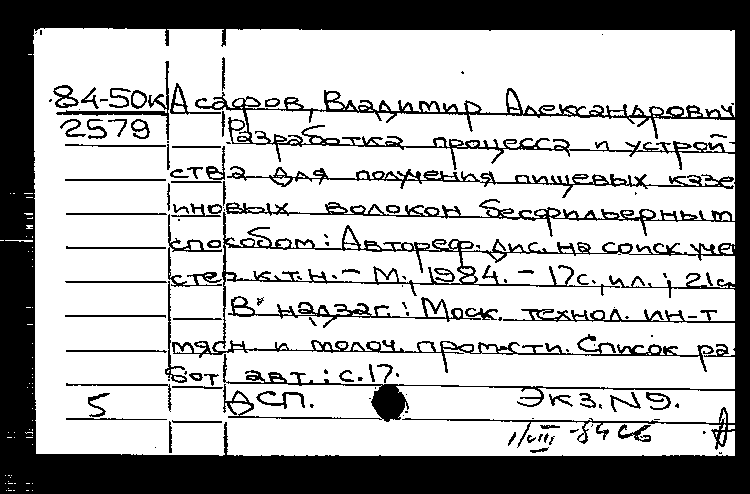 84-50к Асафов, Владимир Александрович
2579 Разработка процесса и устрой-
ства для получения пищевых казе
иновых волокон бесфильерным
способом: Автореф. дис. на соиск. уче
степ к.т.н. - М., 1984. - 17с., ил.; 21см
В надзаг.: Моск. технол. ин-т
мясн. и молоч. пром-сти. Список ра
бот авт.: с.17.
5 ДСП. Экз. N9.
1/VIII -84